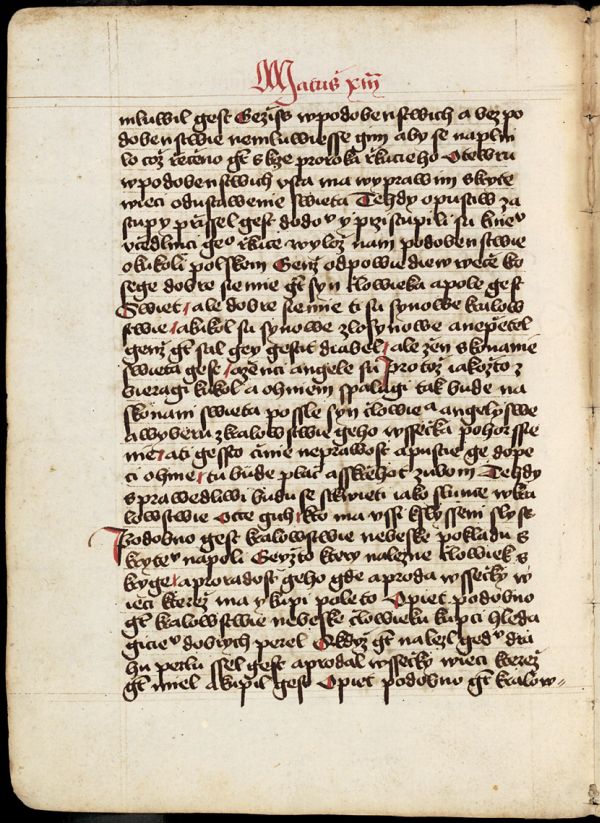 Matus xiii
mluwil gest Gezis w podobenstwich a bez po
dobenstwie nemluwiesse gim aby se naplni
lo coz rceno gt skze proroka rkucieho Otewru
w podobenstwich usta ma wyprawim skryte
wieci od ustawenie swieta Tehdy opustiw za
stupy prissel gest do do͏ͧ y przistupili su k nieͧ
ucedlnici geͦ rkuce wyloz nam podobenstwie
o kukoli polskem Genz odpowiediew wece ko
sege dobre siemie gt syn clowieka a pole gest
Swiet / ale dobre siemie ti su synowe kralow
stwie / a kukol su synowe zlosynowe a neprietel
genz gt sal gey gestit diabel / ale zen skonanie
swieta gest / a zenci angele su Protoz iakozto z
bieragi kukol a ohniem spalugi tak bude na
skonani swieta possle syn clowieͣ angely swe
a wyberu z kralowstwie geho wssecka pohorssie
nie / a ti gessto cinie neprawost a pustie ge do pe
ci ohnie / tu bude plac a sskrehot zubom Tehdy
sprawedliwi budu se stkwieti iako slunce w kra
lowstwie Otce gich / kto ma ussi k slyssem slyss
Podobno gest kralowstwie nebeske pokladu s
kryteͧ na poli Geyzto ktery nalezne clowiek s
kryge / a pro radost geho gde a proda wssecky w
ieci kterez ma y kupi pole to Opiet podobno
gt kralowstwie nebeske clowieku kupci hleda
gicieͧ dobrych perel Kdyz gt nalezl gedͧ dra
hu perlu ssel gest a prodal wssecky wieci kterez
gt miel a kupil gest Opiet podobno gt kralow=